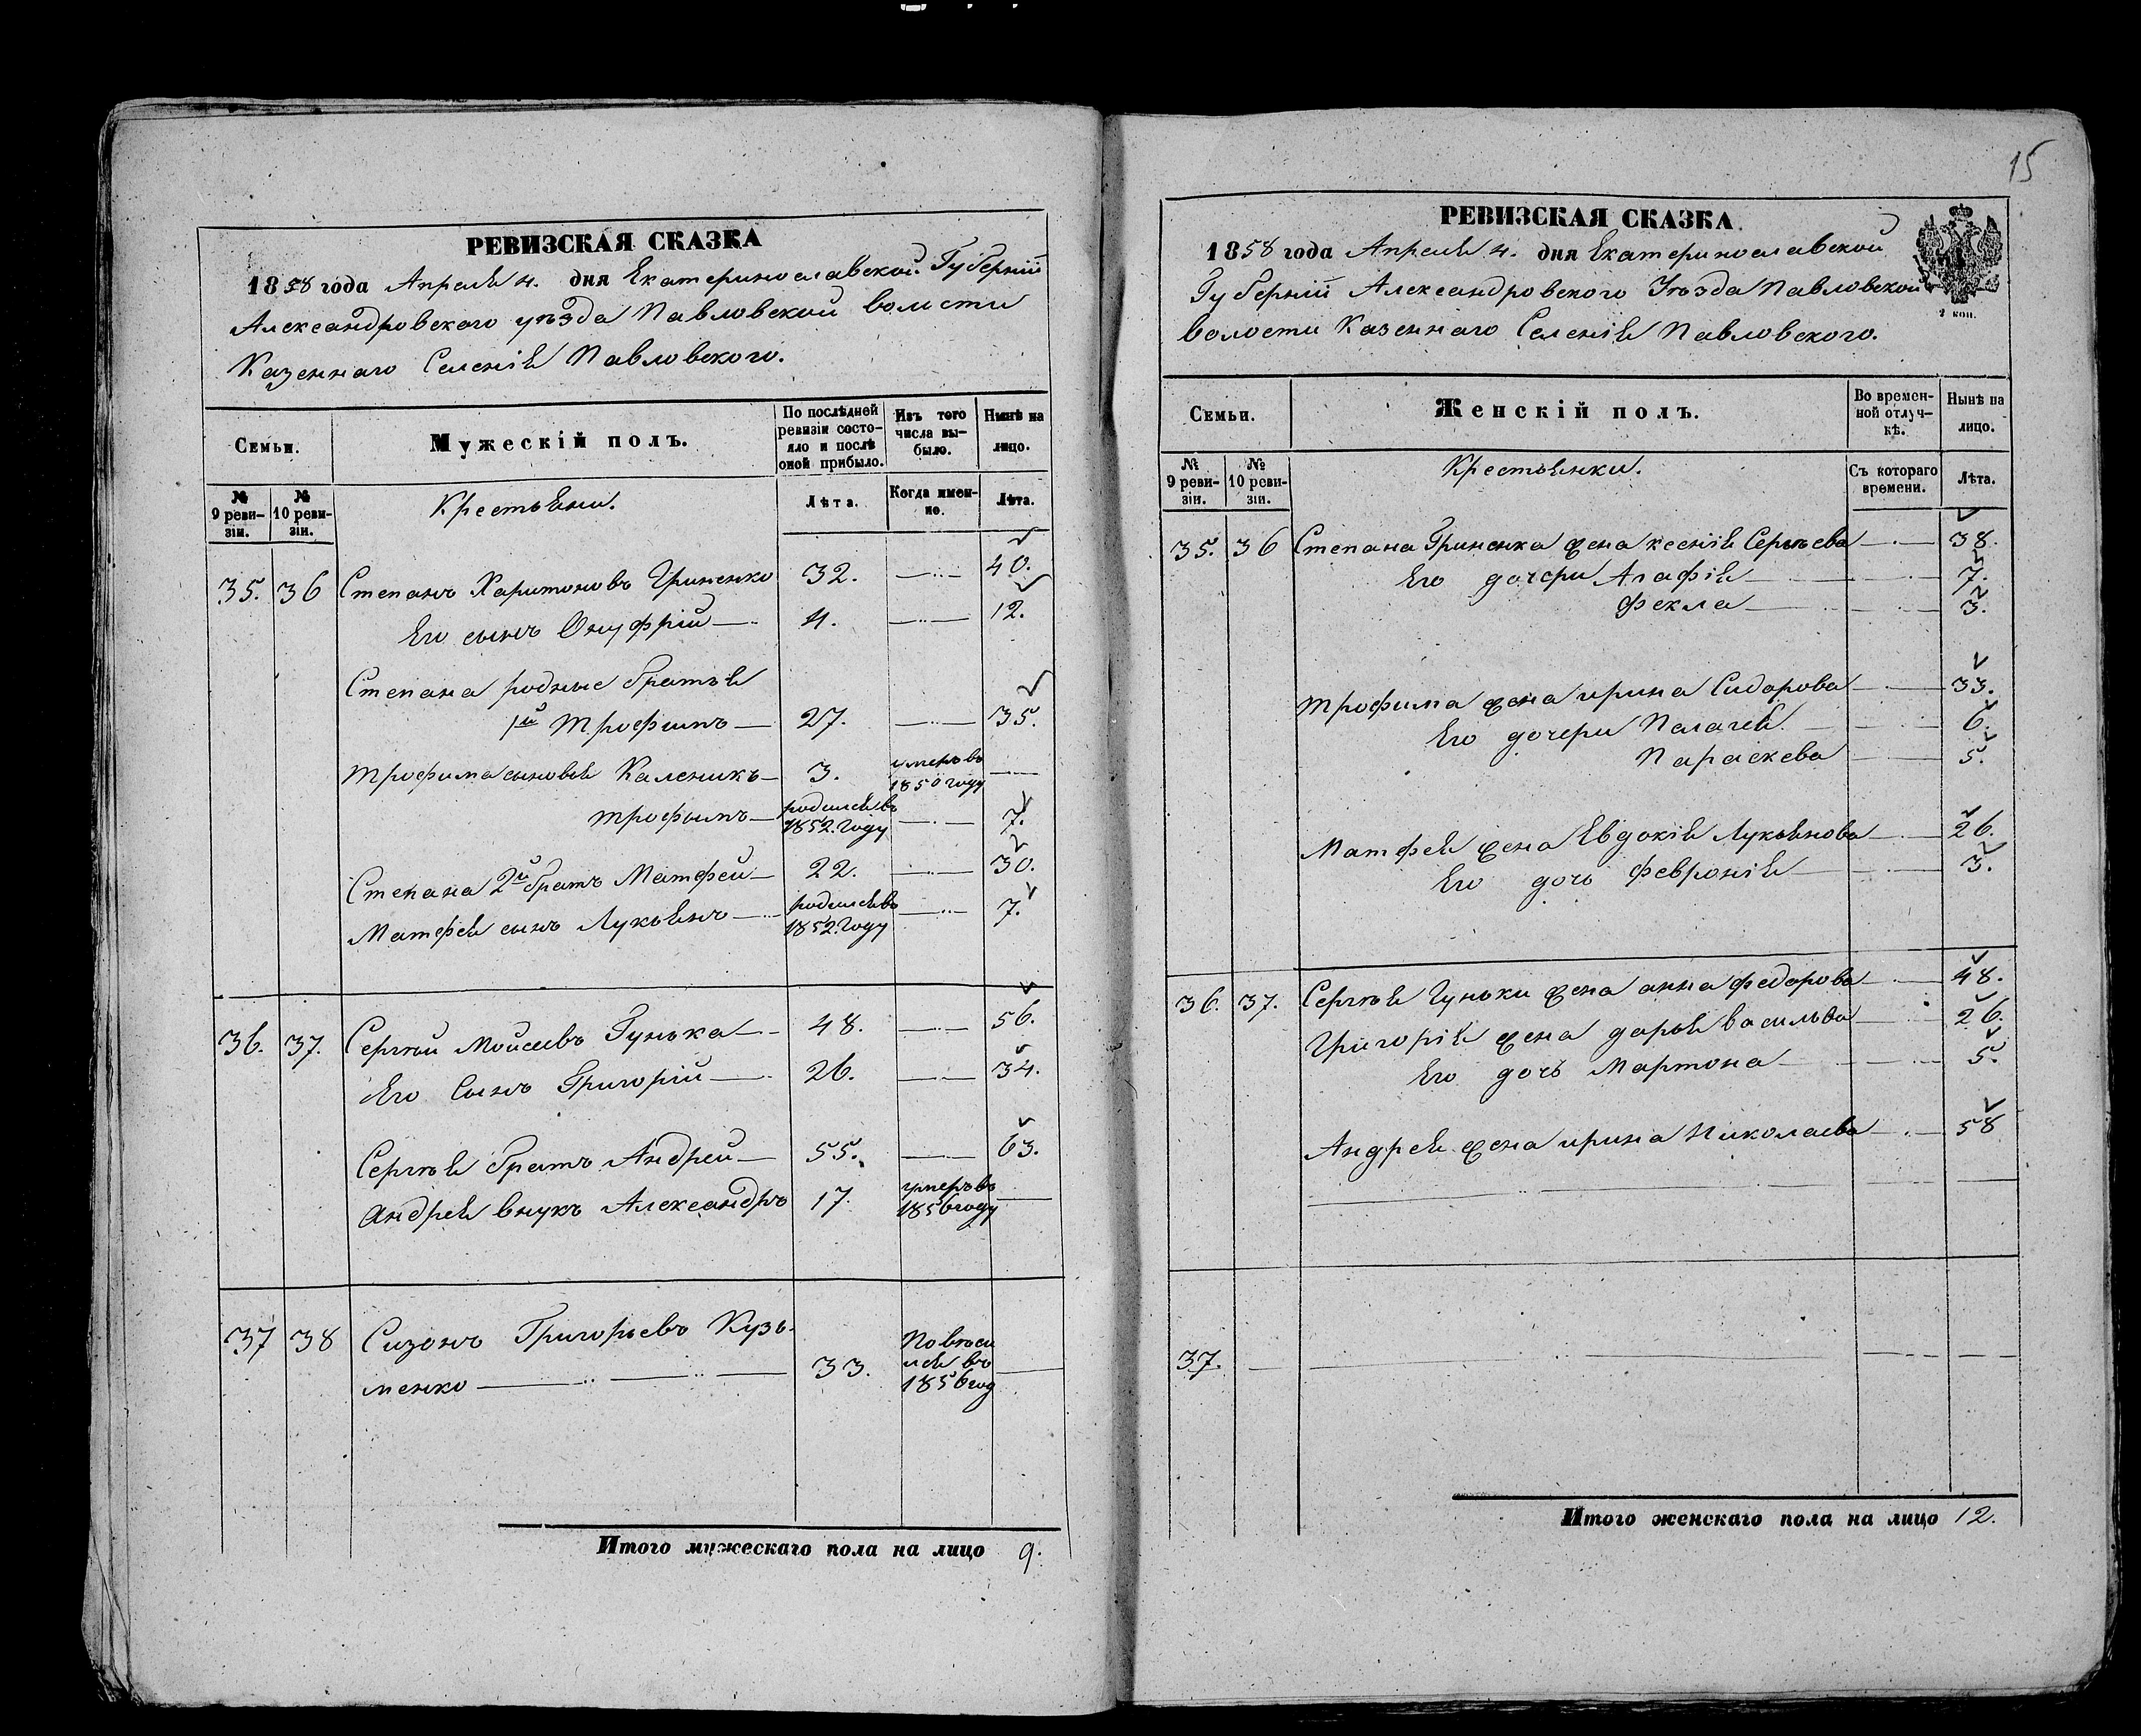 РЕВИЗСКАЯ СКАЗКА
1858 года Апреля 4. дня Екатеринославской Губерніи
Александровского уѣзда Павловской волости
Казеннаго Селенія Павловского.
Семьи.
Мужескій полъ.
По послѣдней ревизіи состояло и послѣ оной прибыло.
Изъ того числа выбыло.
Нынѣ на лицо.
№ 9 ревизіи.
№ 10 ревизіи.
Крестьяни.
Лѣта.
Когда именно.
Лѣта.
35. 36 Степанъ Харитоновъ Гриненко 32. 40.
Его сынъ Онуфрій 4. 12.
Степана родные братья
1й Трофимъ 27. 35.
Трофима сыновья Каленикъ 3. умеръ въ 1850 году
Трофимъ родился въ 1852. году 7.
Степана 2й братъ Матфей 22. 30.
Матфея сынъ Лукьянъ родился въ 1852. году 7.
36. 37. Сергѣй Моисеевъ Гунька 48. 56.
Его Сынъ Григорій 26. 34.
Сергѣя братъ Андрей 55. 63.
Андрея внукъ Александръ 17. умеръ въ 1856 году
37 38 Сизонъ Григорьевъ Кузь-
менко 33. Повѣси
лся въ
1856 год
Итого мужескаго пола на лицо 9.
15
РЕВИЗСКАЯ СКАЗКА
1858 года Апреля 4. дня Екатеринославской
Губерніи Александровского Уѣзда Павловской
волости Казеннаго Селенія Павловского.
2 коп.
Семьи.
Женскій полъ.
Во временной отлучкѣ.
Нынѣ на лицо.
№ 9 ревизіи.
№ 10 ревизіи.
Крестьянки.
Съ котораго времени.
Лѣта.
35. 36 Степана Гриненка жена ксенія Сергѣева 38.
Его дочери Агафія 7.
Фекла 3.
Трофима жена ирина Сидорова 33.
Его дочери Палагея 6.
Параскева 5.
Матфея жена Евдокія Лукьянова 26.
Его дочь Февронія 3.
36. 37. Сергѣя Гуньки жена анна федорова 48.
Григорія жена дарья васильва 26.
Его дочь Мартона 5.
Андрея жена ирина Николаева 58
37.
Итого женскаго пола на лицо 12.